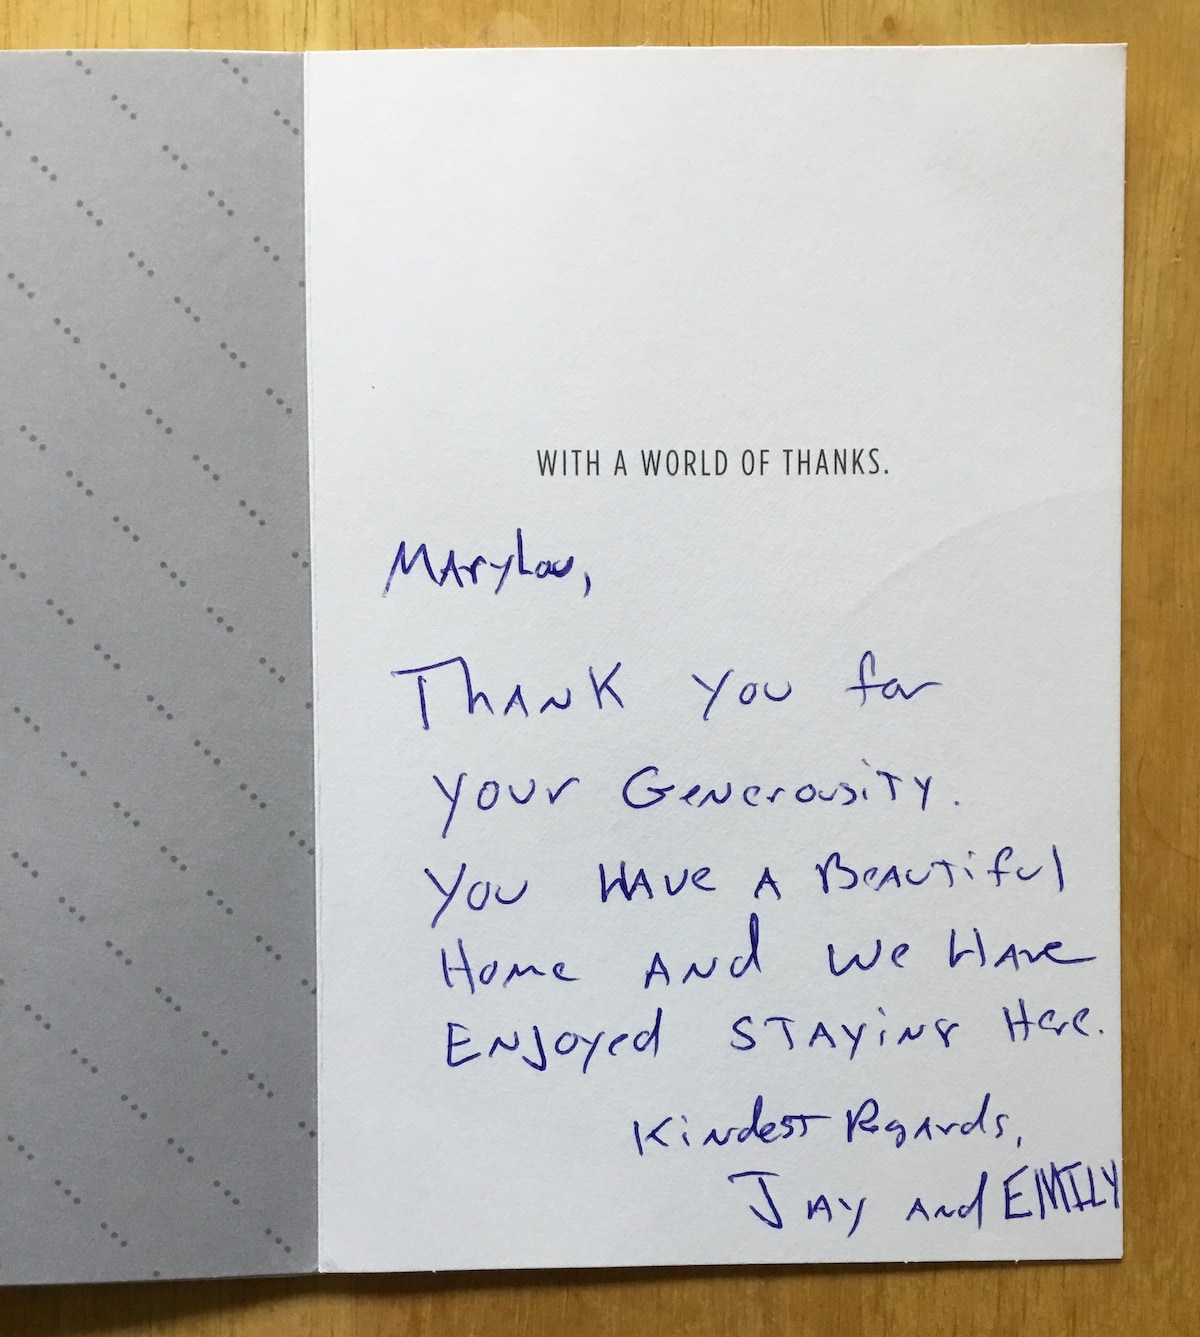 WITH A WORLD OF THANKS.
MAryLou,
THANK You for
your Generousity.
You HAve A BeAuTiful
Home ANd We HAve
ENJoyed STAYiNg Here.
KiNdesT RegArds,
JAy ANd EMILY